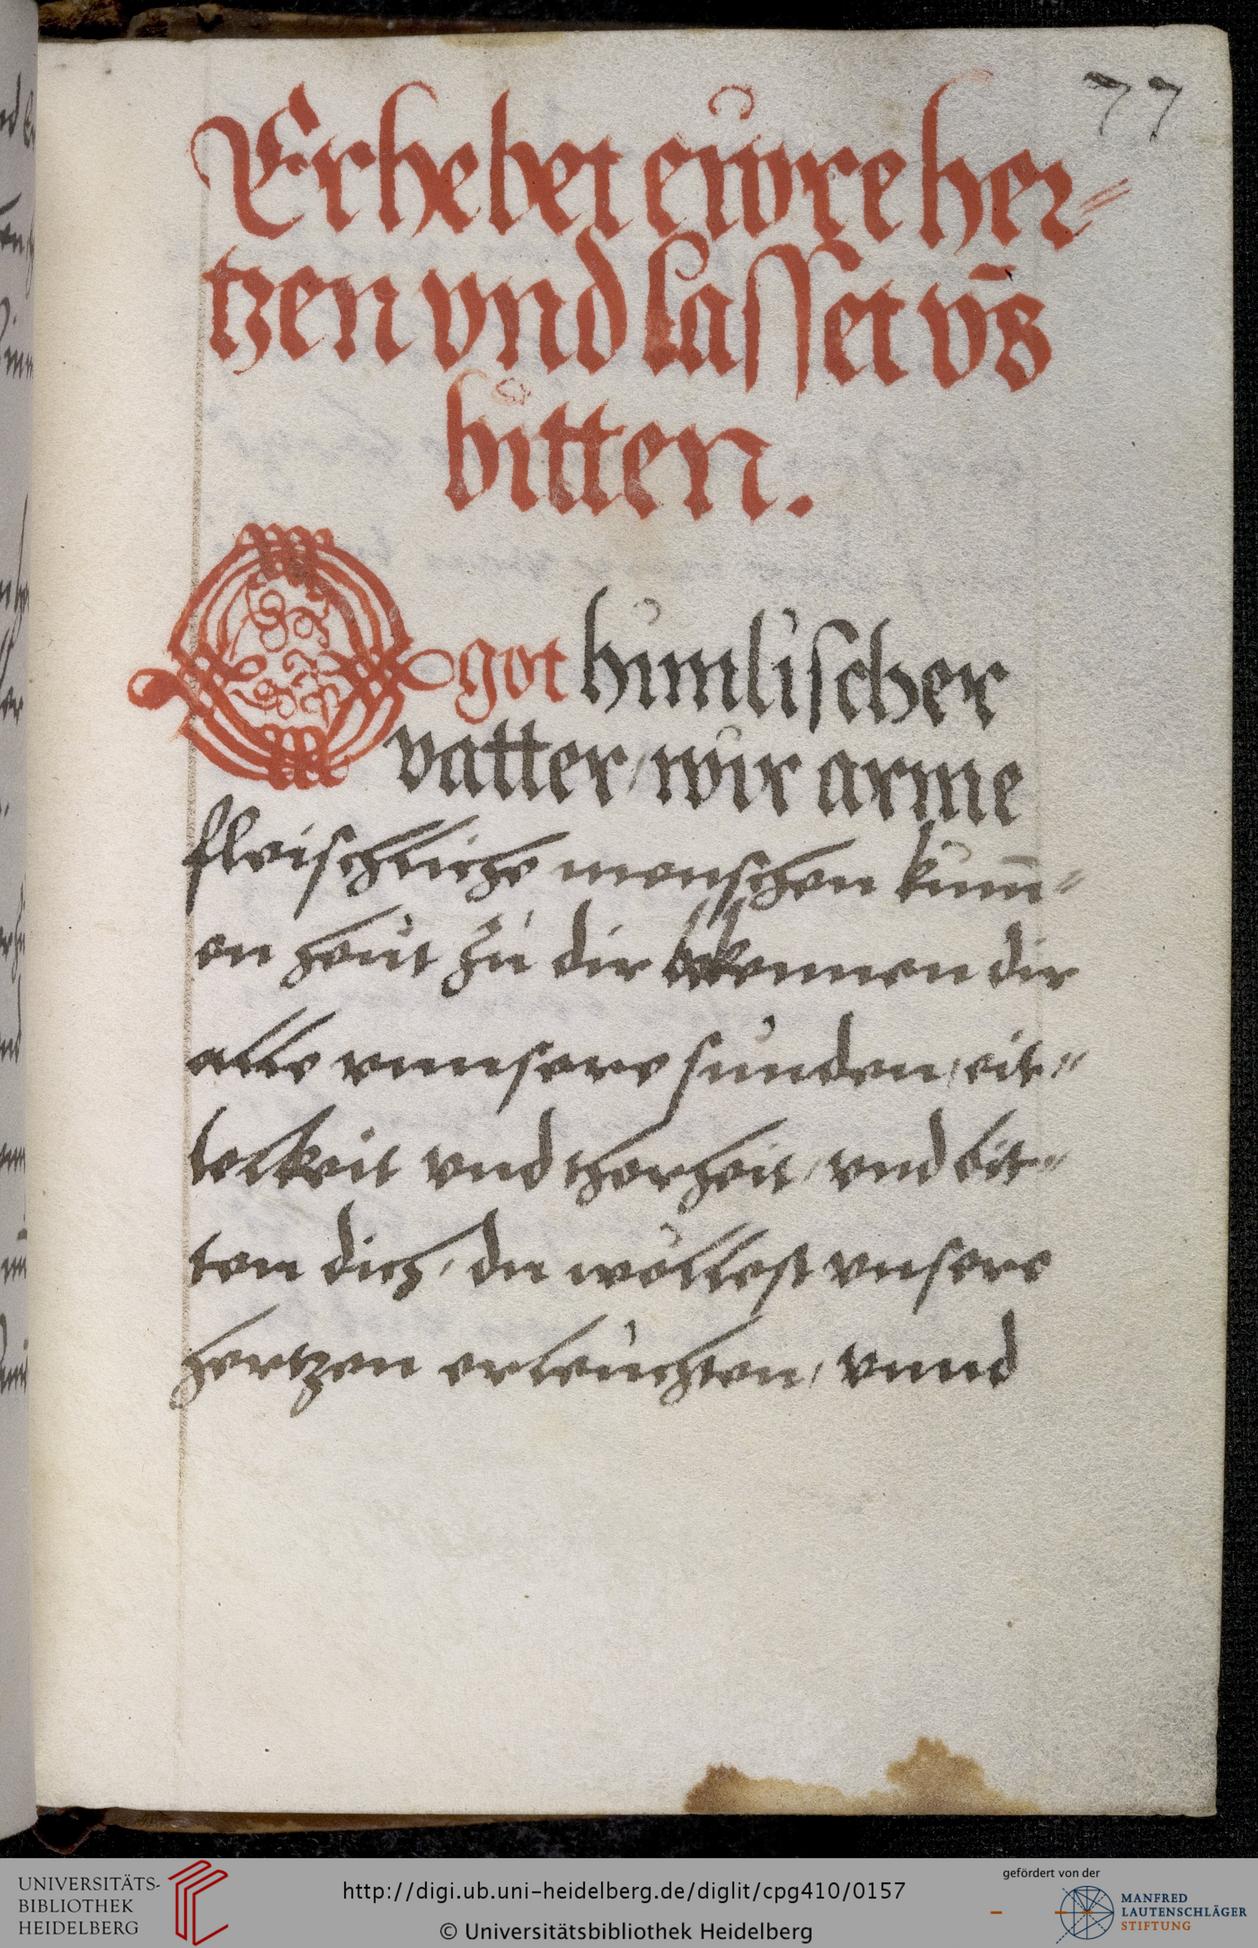 77
Erhebet eůwre her⸗
tzen vnd lasset vn̄s
bitten.
O got himlischer
vatter / wir arme
fleischliche menschen kum̄⸗
en heut zu dir bekennen dir
alle vnnsere sunden / eit⸗
telckeit vnd thorheit / vnd bit⸗
ten dich / du wöllest vnsere
hertzen erleuchten / vnnd
UNIVERSITÄTS-
BIBLIOTHEK
HEIDELBERG
http://digi.ub.uni-heidelberg.de/diglit/cpg410/0157
© Universitätsbibliothek Heidelberg
gefördert von der
MANFRED
LAUTENSCHLÄGER
STIFTUNG